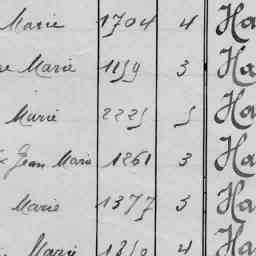 Marie 1704 4 Ha
Marie 1159 3 Ha
Marie 2225 5 Ha
Jean Marie 1261 3 Ha
Marie 1377 3 Ha
Marie 4 Ha